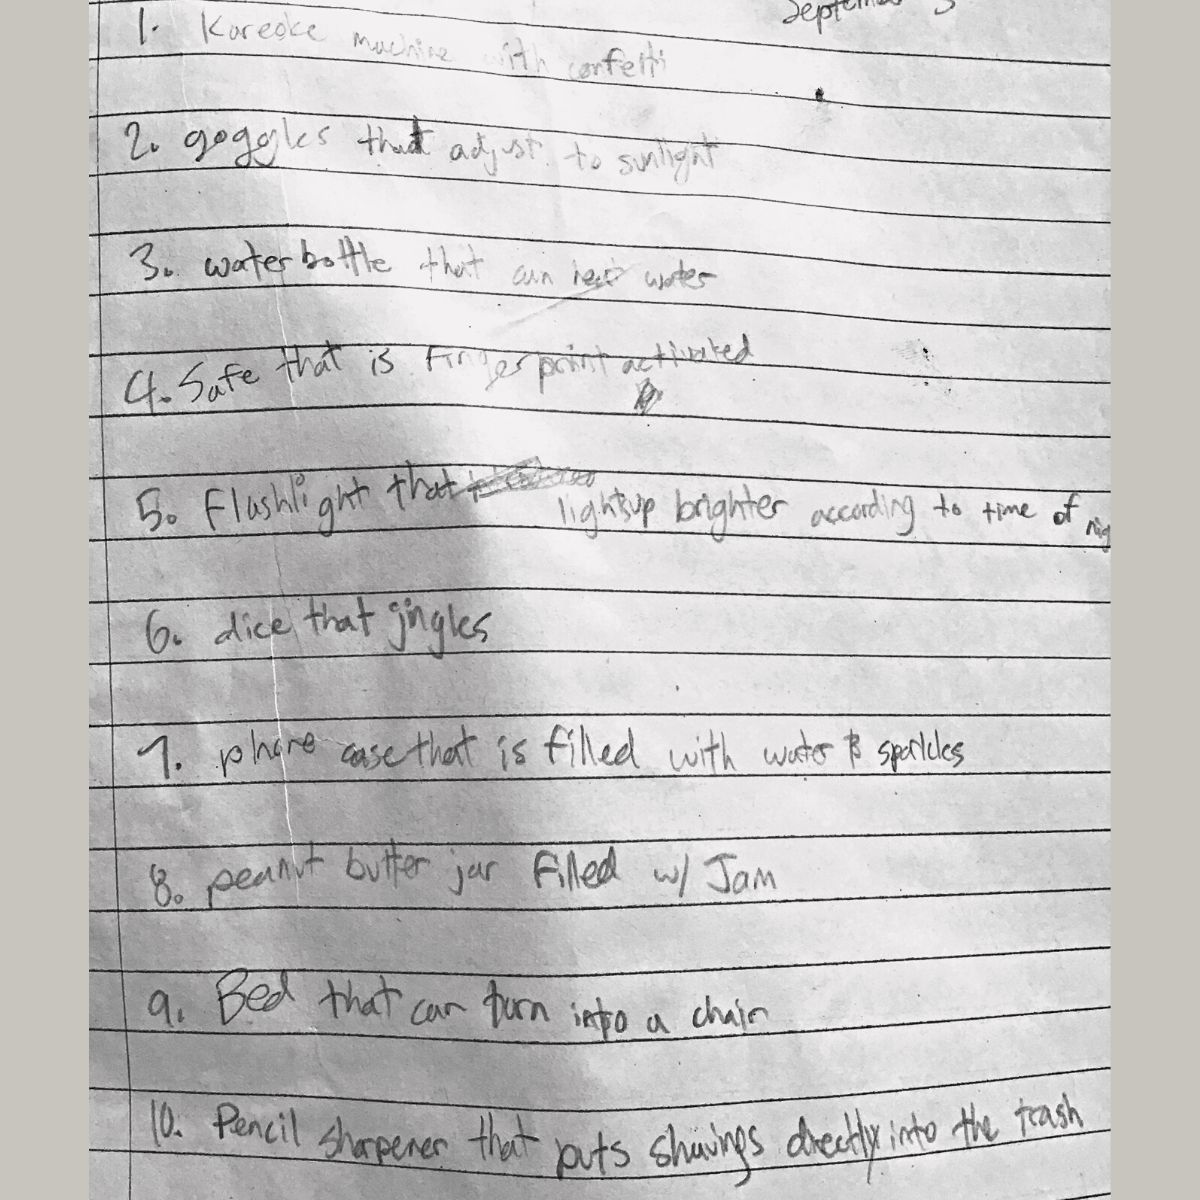 September 3
1. Kareoke machine with confetti
2. goggles that adjust to sunlight
3. water bottle that can heat water
4. Safe that is fingerprint activated
5. Flashlight that lightsup brighter according to time of nig
6. dice that jingles
7. phone case that is filled with water & sparkles
8. peanut butter jar filled w/ Jam
9. Bed that can turn into a chair
10. Pencil sharpener that puts shavings directly into the trash